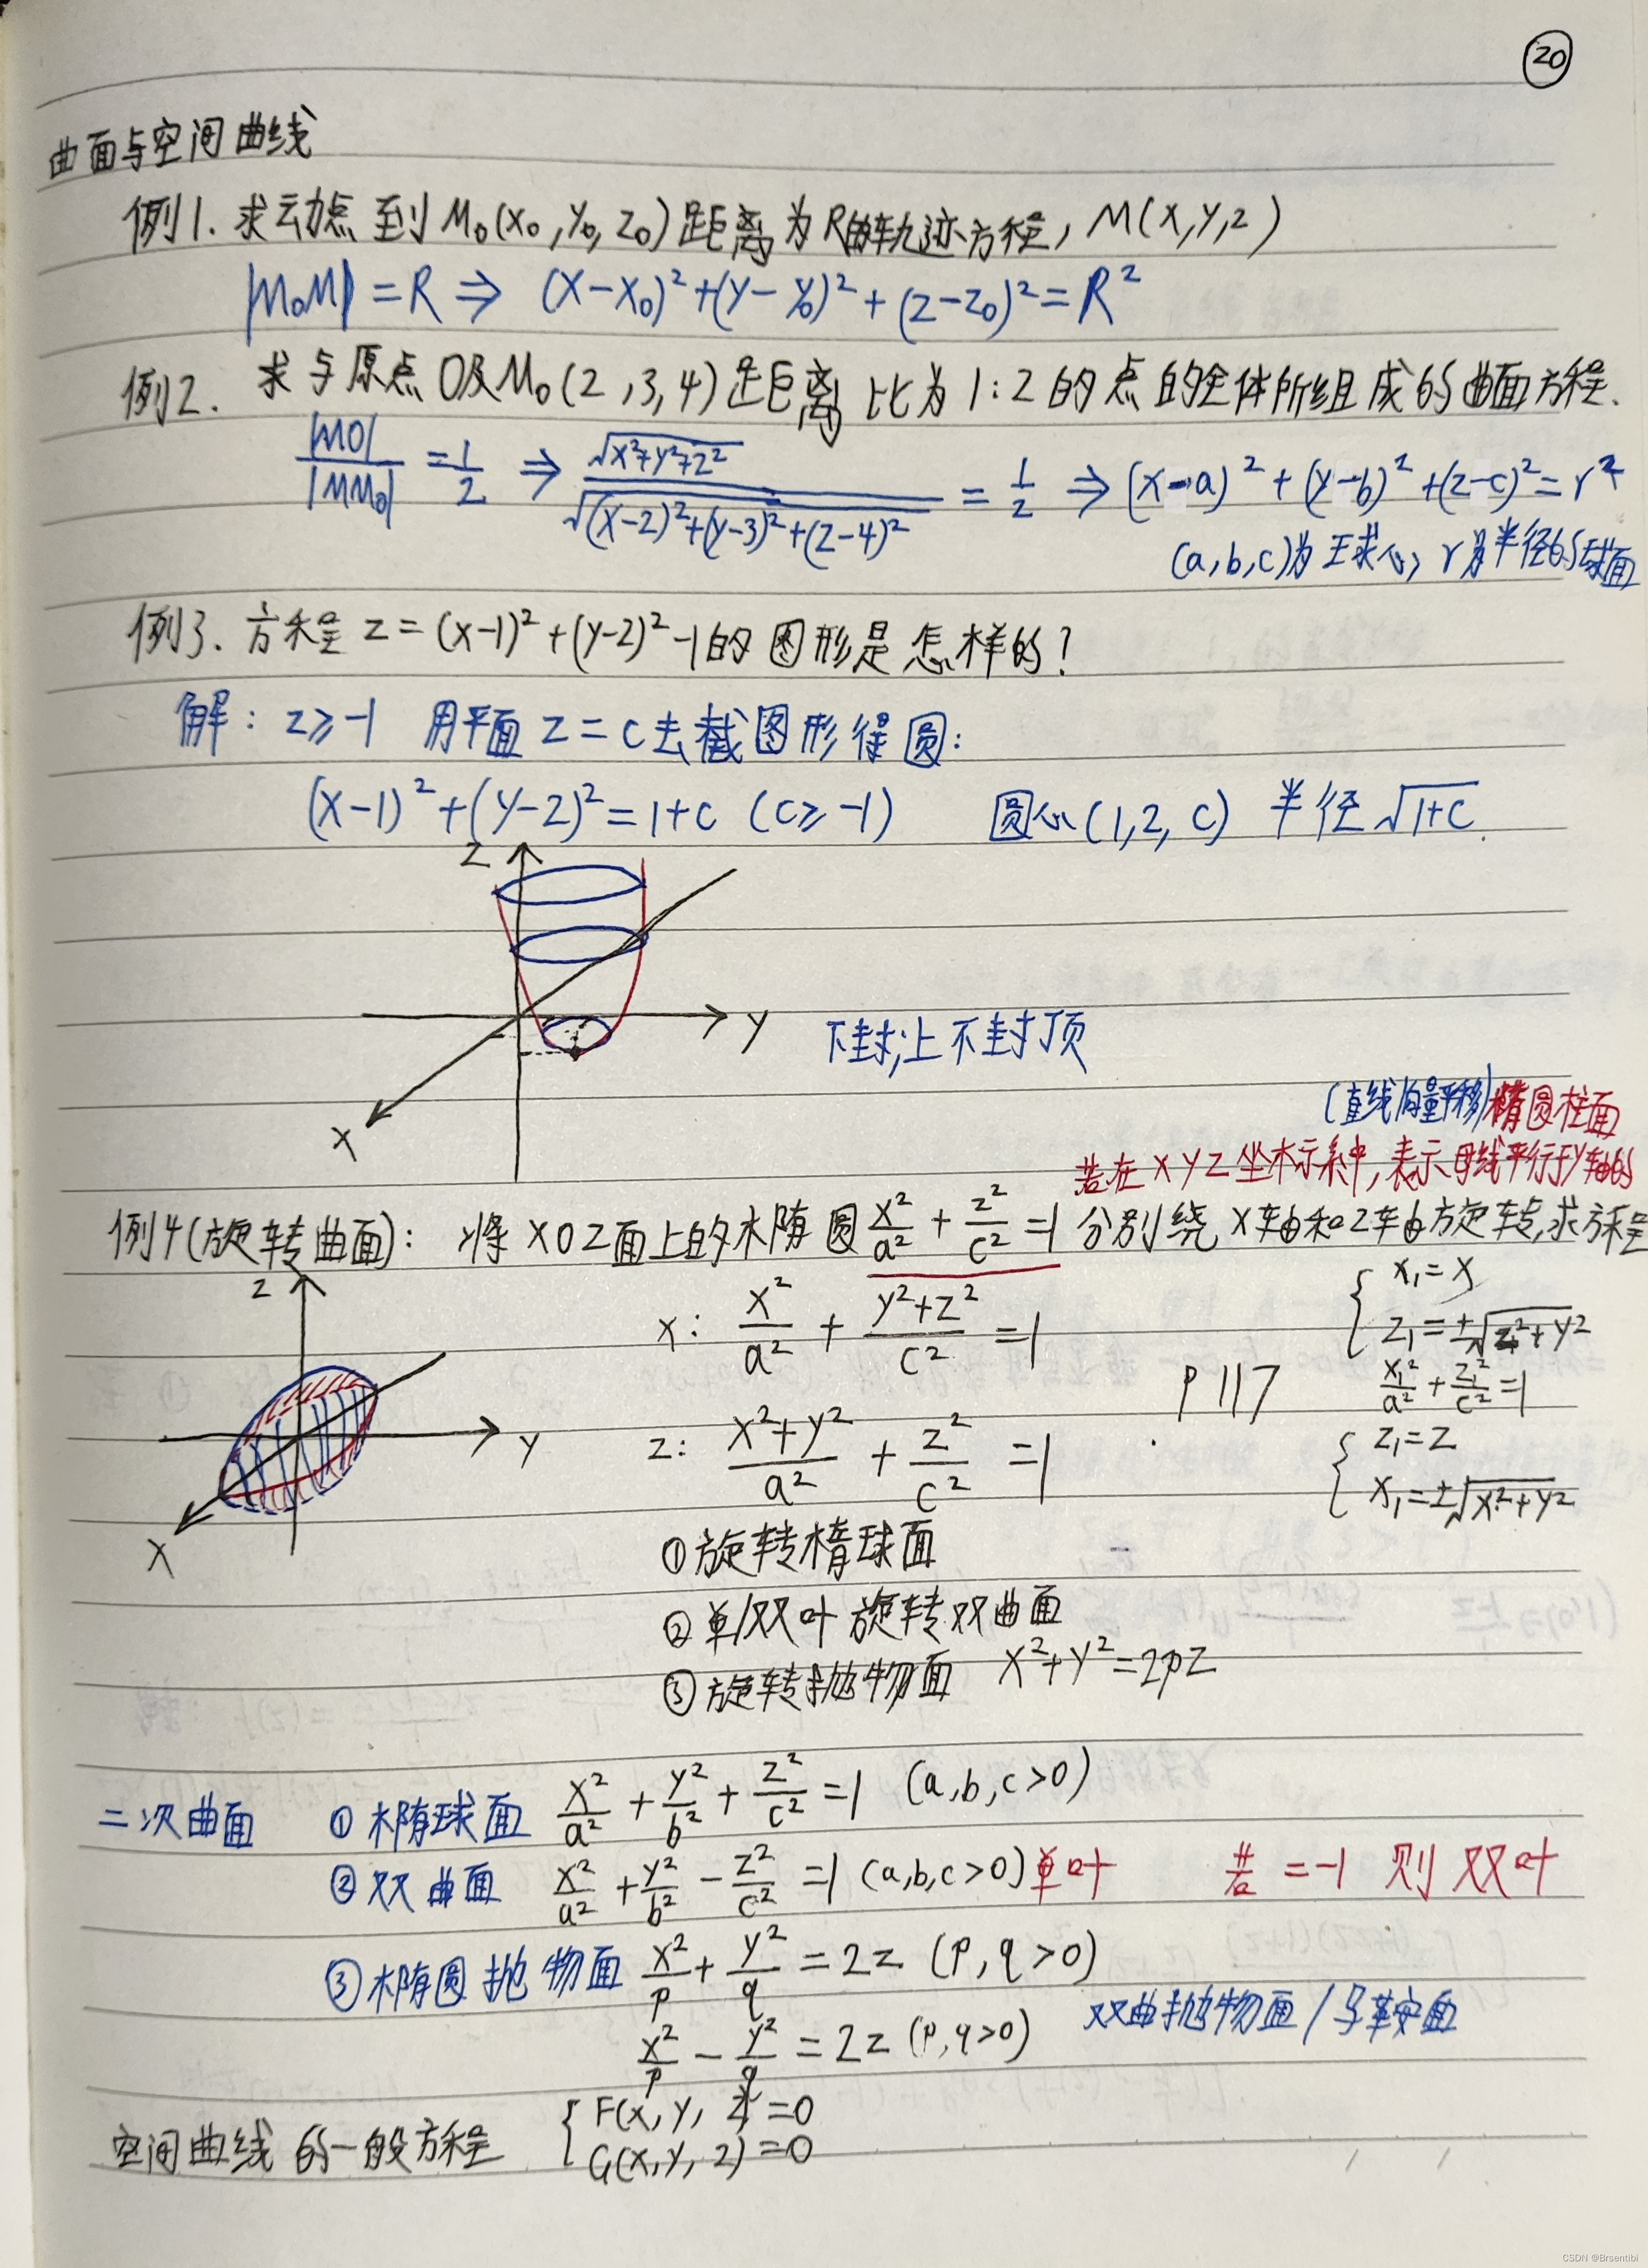 20
曲面与空间曲线
例1. 求动点到 M₀(x₀,y₀,z₀)距离为R的轨迹方程, M(x,y,z)
|M₀M|=R ⇒ (x-x₀)²+(y-y₀)²+(z-z₀)²=R²
例2. 求与原点O及M₀(2,3,4)距离比为1:2的点的全体所组成的曲面方程.
|MO|/|MM₀| = 1/2 ⇒ √(x²+y²+z²)/√((x-2)²+(y-3)²+(z-4)²) = 1/2 ⇒ (x-a)²+(y-b)²+(z-c)²=r²
(a,b,c)为球心, r为半径的球面
例3. 方程 z=(x-1)²+(y-2)²-1的图形是怎样的?
解: z≥-1 用平面 z=c去截图形得圆:
(x-1)²+(y-2)²=1+c (c≥-1) 圆心(1,2,c) 半径√(1+c).
z
y
x
下封,上不封顶
(直线向量平移)椭圆柱面
若在xyz坐标系中,表示母线平行于y轴的
例4(旋转曲面): 将xoz面上的椭圆 x²/a² + z²/c² =1 分别绕x轴和z轴旋转,求方程
z
y
x
x: x²/a² + (y²+z²)/c² =1
z: (x²+y²)/a² + z²/c² =1
P117
{ x₁=x
z₁=±√(z²+y²)
x₁²/a² + z₁²/c² =1
{ z₁=z
x₁=±√(x²+y²)
①旋转椭球面
②单/双叶旋转双曲面
③旋转抛物面 x²+y²=2pz
二次曲面 ①椭球面 x²/a² + y²/b² + z²/c² =1 (a,b,c>0)
②双曲面 x²/a² + y²/b² - z²/c² =1 (a,b,c>0)单叶 若=-1 则双叶
③椭圆抛物面 x²/p + y²/q = 2z (p,q>0)
x²/p - y²/q = 2z (p,q>0) 双曲抛物面/马鞍面
空间曲线的一般方程 { F(x,y,z)=0
G(x,y,z)=0
CSDN @Brsentibi